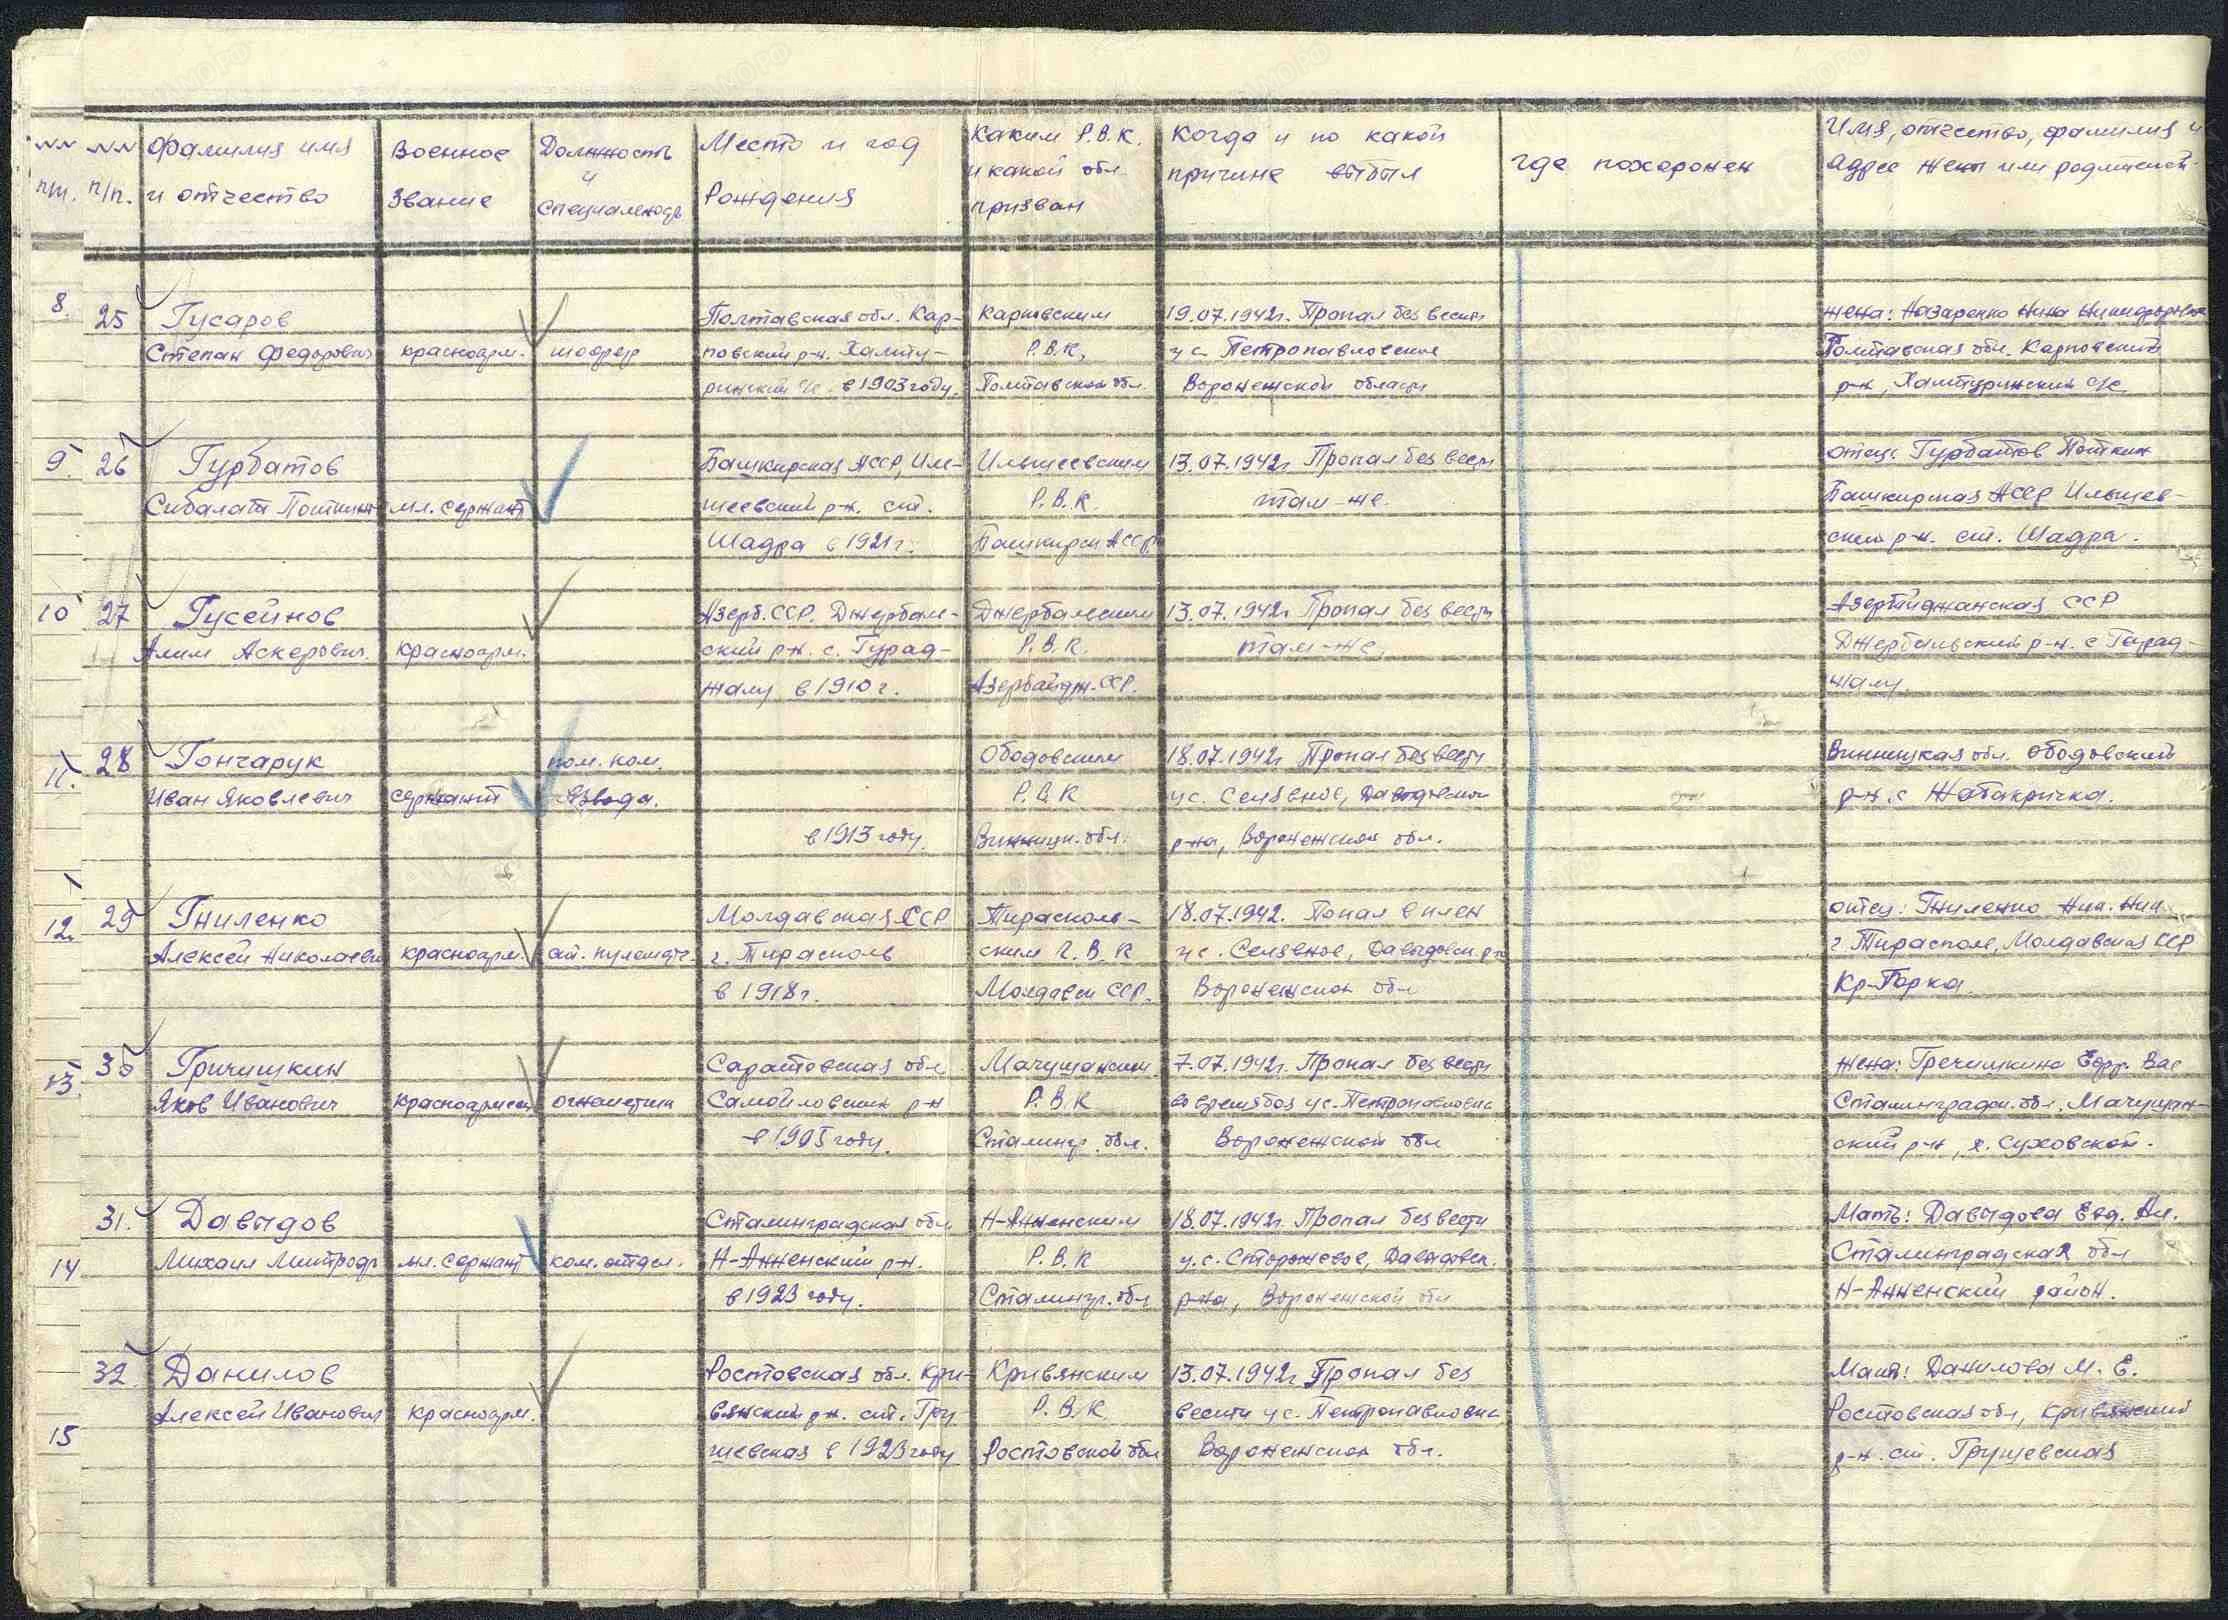 №№ п/п.
№№ п/п.
Фамилия имя
и отчество
Военное
звание
Должность
и
специальность
Место и год
рождения
Каким Р.В.К.
и какой обл.
призван
Когда и по какой
причине выбыл
где похоронен
Имя, отчество, фамилия и
адрес жены или родителей
8. 25 Гусаров
Степан Федорович
красноарм.
шофер
Полтавская обл. Кар-
ловский р-н.
в 1903 году.
Карловским
Р.В.К,
Полтавской обл.
19.07.1942г. Пропал без вести
у с. Петропавловские
Воронежской области
жена: Назаренко Нина Никифоровна
Полтавская обл. Карловский
р-н, Халтуринский с/с
9. 26 Гурбатов
Сибалат
мл. сержант
Башкирская АССР, Или-
шевский р-н. ст.
Шадра в 1921 г.
Ильшеевским
Р.В.К.
Башкирск АССР
13.07.1942г Пропал без вести
там-же.
отец: Гурбатов
Башкирская АССР Ильшев-
ский р-н. ст. Шадра.
10 27 Гусейнов
Алим Аскерович.
красноарм.
Азерб.ССР. Джербаль-
ский р-н. с. Гурад-
жалу в 1910 г.
Джербальским
Р.В.К.
Азербайдж. ССР.
13.07.1942г Пропал без вести
там-же.
Азербайджанская ССР
Джербальский р-н. с Гурад-
жалу.
11. 28 Гончарук
Иван Яковлевич
сержант
пом. ком.
взвода.
в 1913 году.
Ободовским
Р.В.К
Винницк. обл.
18.07.1942г Пропал без вести
у с. Селявное, Давыдовского
р-на, Воронежской обл.
Винницкая обл. Ободовский
р-н. с Жабокричка.
12. 29 Гниленко
Алексей Николаевич
красноарм.
ст. пулеметч.
Молдавская ССР
г. Тирасполь
в 1918 г.
Тирасполь-
ским Г.В.К
Молдавск ССР.
18.07.1942. Попал в плен
у с. Селявное, Давыдовск. р-н
Воронежской обл
отец: Гниленко Ник. Ник.
г. Тирасполь, Молдавская ССР
Кр-Горка.
13. 30 Гричишкин
Яков Иванович
красноармеец
огнеметчик
Саратовская обл
Самойловский р-н
в 1905 году.
Мачушанским
Р.В.К
Сталингр. обл.
7.07.1942г. Пропал без вести
во время боя у с. Петропавловка
Воронежской обл
жена: Гречишкина Ефр. Вас
Сталинградск. обл, Мачушан-
ский р-н, х. Суховской.
14 31. Давыдов
Михаил Митроф.
мл. сержант
ком. отдел.
Сталинградская обл
Н-Анненский р-н.
в 1923 году.
Н-Анненским
Р.В.К
Сталингр. обл
18.07.1942г. Пропал без вести
у.с. Сторожевое, Давыдовск.
р-на, Воронежской обл
Мать: Давыдова Евд. Ал.
Сталинградская обл
Н-Анненский район.
15 32 Данилов
Алексей Иванович
красноарм.
Ростовская обл. Кри-
вянский р-н. ст. Гру
шевская в 1923 году
Кривянским
Р.В.К
Ростовской обл
13.07.1942г Пропал без
вести у с. Петропавловка
Воронежской обл.
Мать: Данилова М. Е.
Ростовская обл, Кривянский
р-н. ст. Грушевская